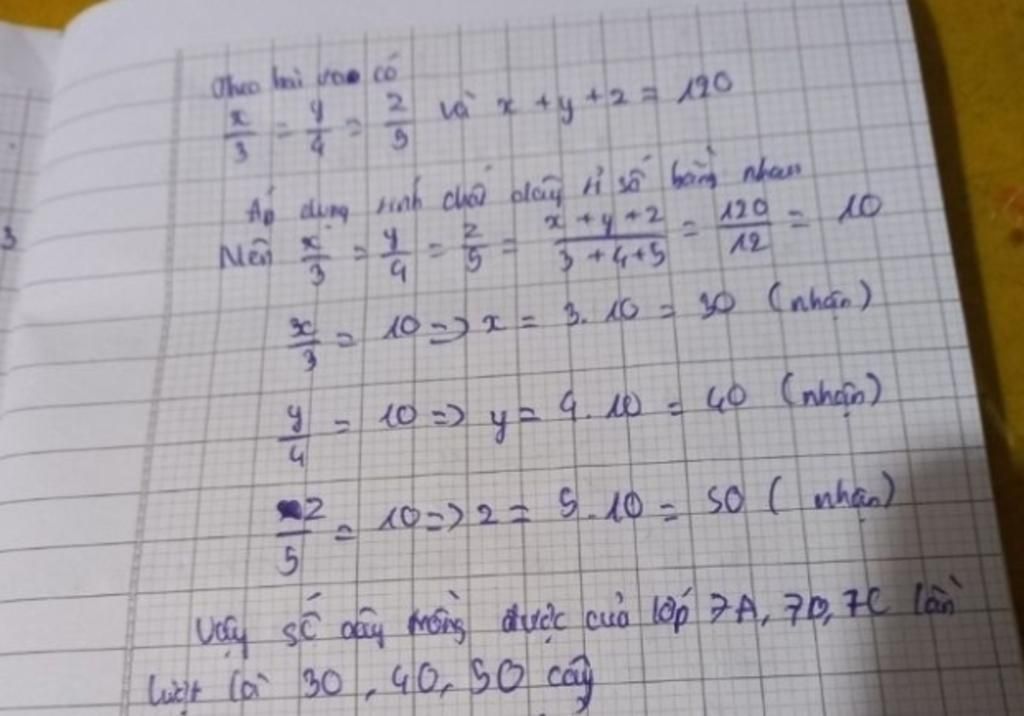 Theo bài ra có
x/3 = y/4 = z/5 và x + y + z = 120
Áp dụng tính chất dãy tỉ số bằng nhau
Nên x/3 = y/4 = z/5 = (x + y + z)/(3 + 4 + 5) = 120/12 = 10
x/3 = 10 => x = 3.10 = 30 (nhận)
y/4 = 10 => y = 4.10 = 40 (nhận)
z/5 = 10 => z = 5.10 = 50 (nhận)
Vậy số cây trồng được của lớp 7A, 7B, 7C lần
lượt là 30, 40, 50 cây